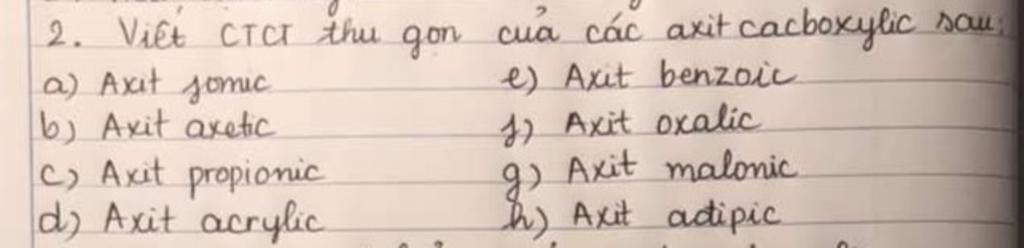 2. Viết CTCT thu gọn của các axit cacboxylic sau:
a) Axit fomic
e) Axit benzoic
b) Axit axetic
f) Axit oxalic
c) Axit propionic
g) Axit malonic
d) Axit acrylic
h) Axit adipic